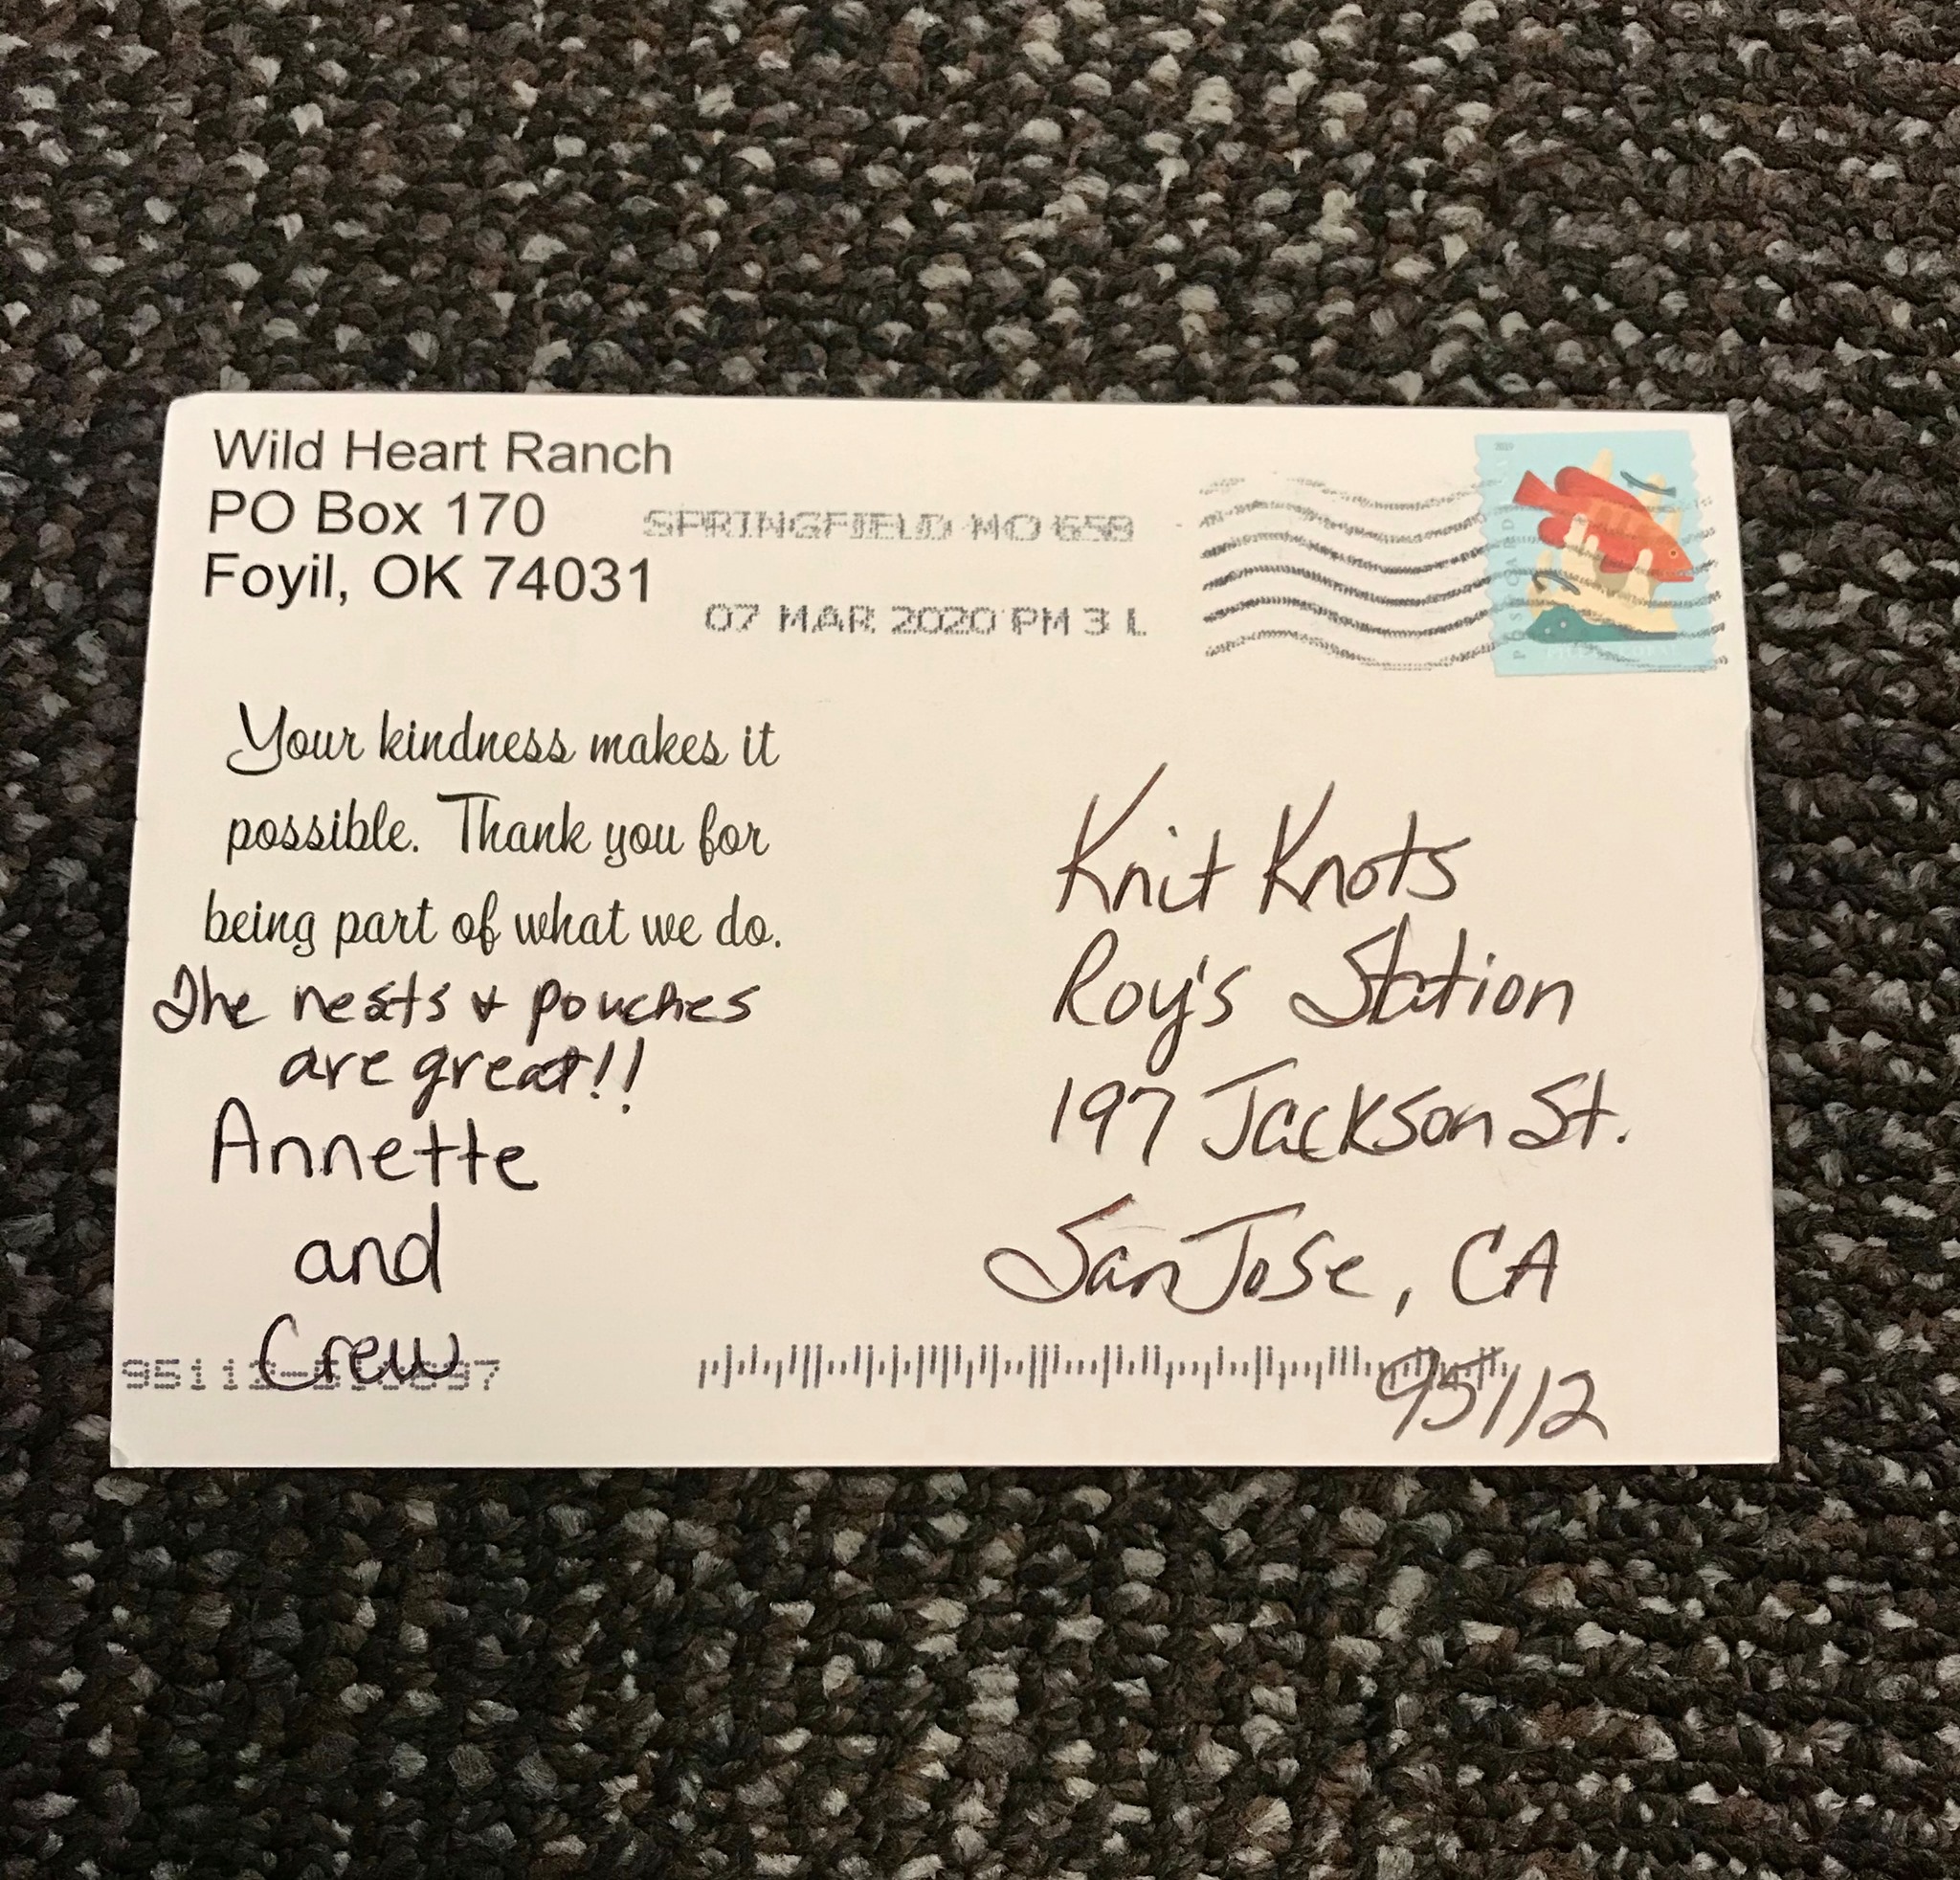 Wild Heart Ranch
PO Box 170
Foyil, OK 74031
SPRINGFIELD MO 658
07 MAR 2020 PM 3 L
Your kindness makes it
possible. Thank you for
being part of what we do.
The nests & pouches
are great!!
Annette
and
Crew
Knit Knots
Roy's Station
197 Jackson St.
San Jose, CA
95112